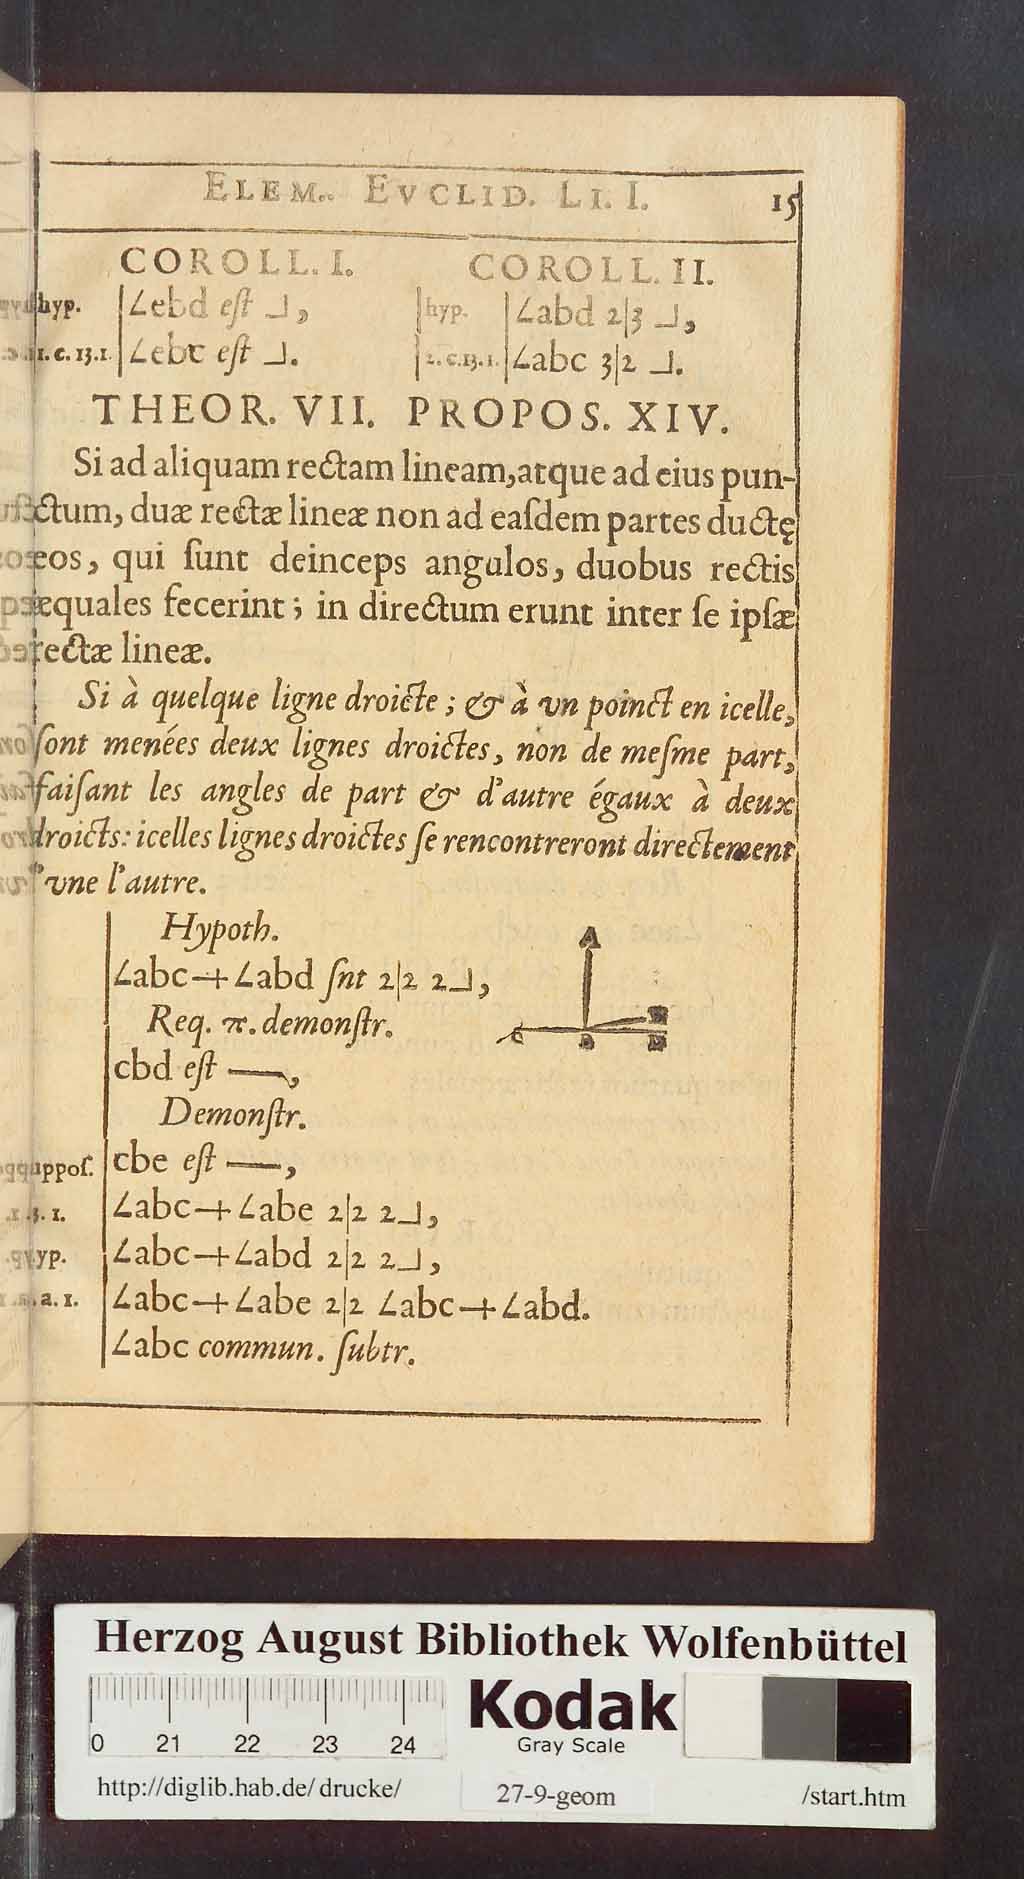 ELEM. EVCLID. LI. I. 15
COROLL. I.
hyp. ∠ebd eſt ⅃,
1. c. 13. 1. ∠ebc eſt ⅃.
COROLL. II.
hyp. ∠abd 2|3 ⅃,
2. c. 13. 1. ∠abc 3|2 ⅃.
THEOR. VII. PROPOS. XIV.
Si ad aliquam rectam lineam, atque ad eius pun-
ctum, duæ rectæ lineæ non ad eaſdem partes ductę
eos, qui ſunt deinceps angulos, duobus rectis
æquales fecerint; in directum erunt inter ſe ipſæ
rectæ lineæ.
Si à quelque ligne droicte; & à vn poinct en icelle,
ſont menées deux lignes droictes, non de meſme part,
faiſant les angles de part & d'autre égaux à deux
droicts: icelles lignes droictes ſe rencontreront directement
l'vne l'autre.
Hypoth.
∠abc + ∠abd ſnt 2|2 2⅃,
Req. π. demonſtr.
cbd eſt —,
Demonſtr.
ſuppoſ. cbe eſt —,
13. 1. ∠abc + ∠abe 2|2 2⅃,
hyp. ∠abc + ∠abd 2|2 2⅃,
a. 1. ∠abc + ∠abe 2|2 ∠abc + ∠abd.
∠abc commun. ſubtr.
A
E
C B D
Herzog August Bibliothek Wolfenbüttel
0 21 22 23 24
Kodak
Gray Scale
http://diglib.hab.de/drucke/ 27-9-geom /start.htm